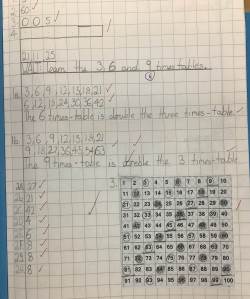 60
0 0 5
21.11.25
WALT learn the 3, 6 and 9 times tables.
1a. 3, 6, 9, 12, 15, 18, 21
6, 12, 18, 24, 30, 36, 42
The 6 times-table is double the three times-table
1b. 3, 6, 9, 12, 15, 18, 21
9, 18, 27, 36, 45, 54, 63
The 9 times-table is the 3 times-table
27
21
42
6
8
8
8
3.
1 2 3 4 5 6 7 8 9 10
11 12 13 14 15 16 17 18 19 20
21 22 23 24 25 26 27 28 29 30
31 32 33 34 35 36 37 38 39 40
41 42 43 44 45 46 47 48 49 50
51 52 53 54 55 56 57 58 59 60
61 62 63 64 65 66 67 68 69 70
71 72 73 74 75 76 77 78 79 80
81 82 83 84 85 86 87 88 89 90
91 92 93 94 95 96 97 98 99 100